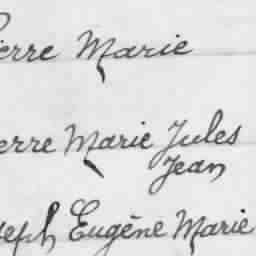 Pierre Marie
Pierre Marie Jules
Jean
Joseph Eugène Marie